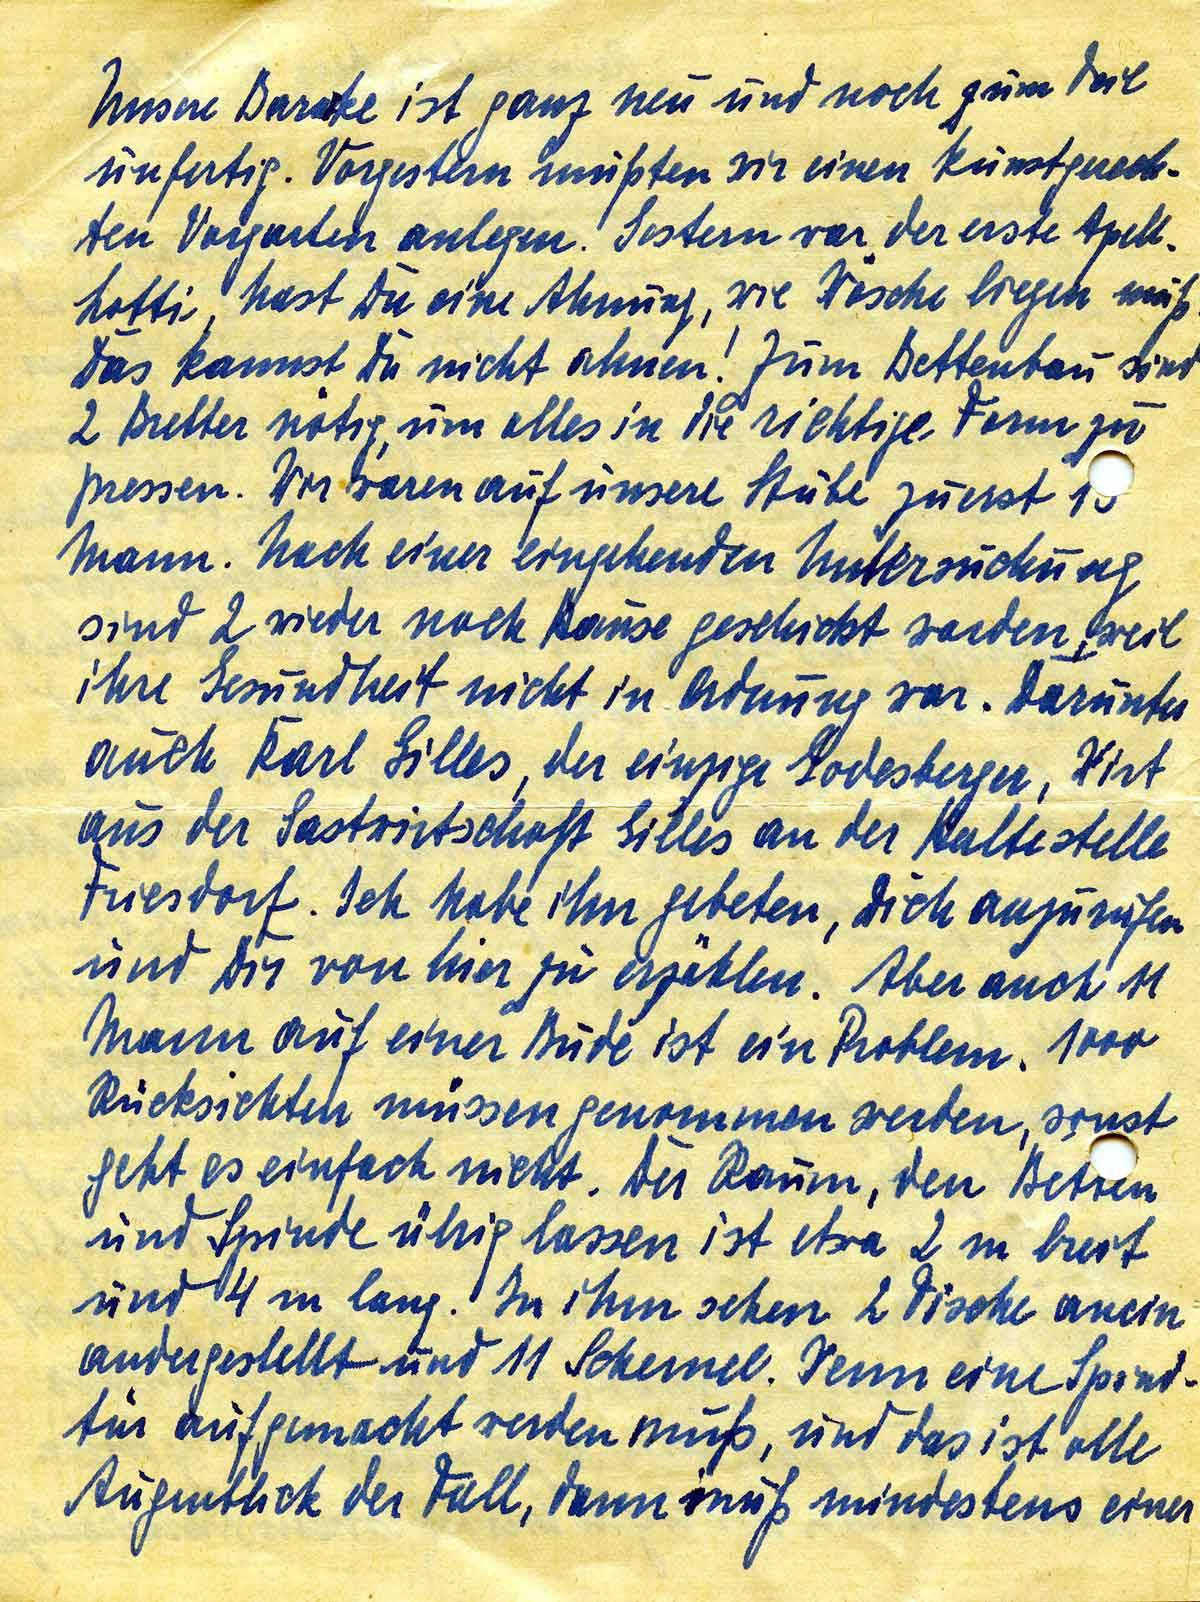 Unsere Baracke ist ganz neu und noch zum Teil
unfertig. Vorgestern mußten wir einen kunstgerech-
ten Vorgarten anlegen. Gestern war der erste Apell.
Lotti, hast Du eine Ahnung, wie Wäsche liegen muß.
Das kannst Du nicht ahnen! Zum Bettenbau sind
2 Bretter nötig, um alles in die richtige Form zu
pressen. Wir waren auf unsere Stube zuerst 13
Mann. Nach einer eingehenden Untersuchung
sind 2 wieder nach Hause geschickt worden, weil
ihre Gesundheit nicht in Ordnung war. Darunter
auch Karl Gilles, der einzige Godesberger, Wirt
aus der Gastwirtschaft Gilles an der Haltestelle
Friesdorf. Ich habe ihn gebeten, Dich anzurufen
und Dir von hier zu erzählen. Aber auch 11
Mann auf einer Bude ist ein Problem. 1000
Rücksichten müssen genommen werden, sonst
geht es einfach nicht. Der Raum, den Betten
und Spinde übrig lassen ist etwa 2 m breit
und 4 m lang. In ihm sehen 2 Tische anein
andergestellt und 11 Schemel. Wenn eine Spind-
tür aufgemacht werden muß, und das ist alle
Augenblick der Fall, dann muß mindestens einer